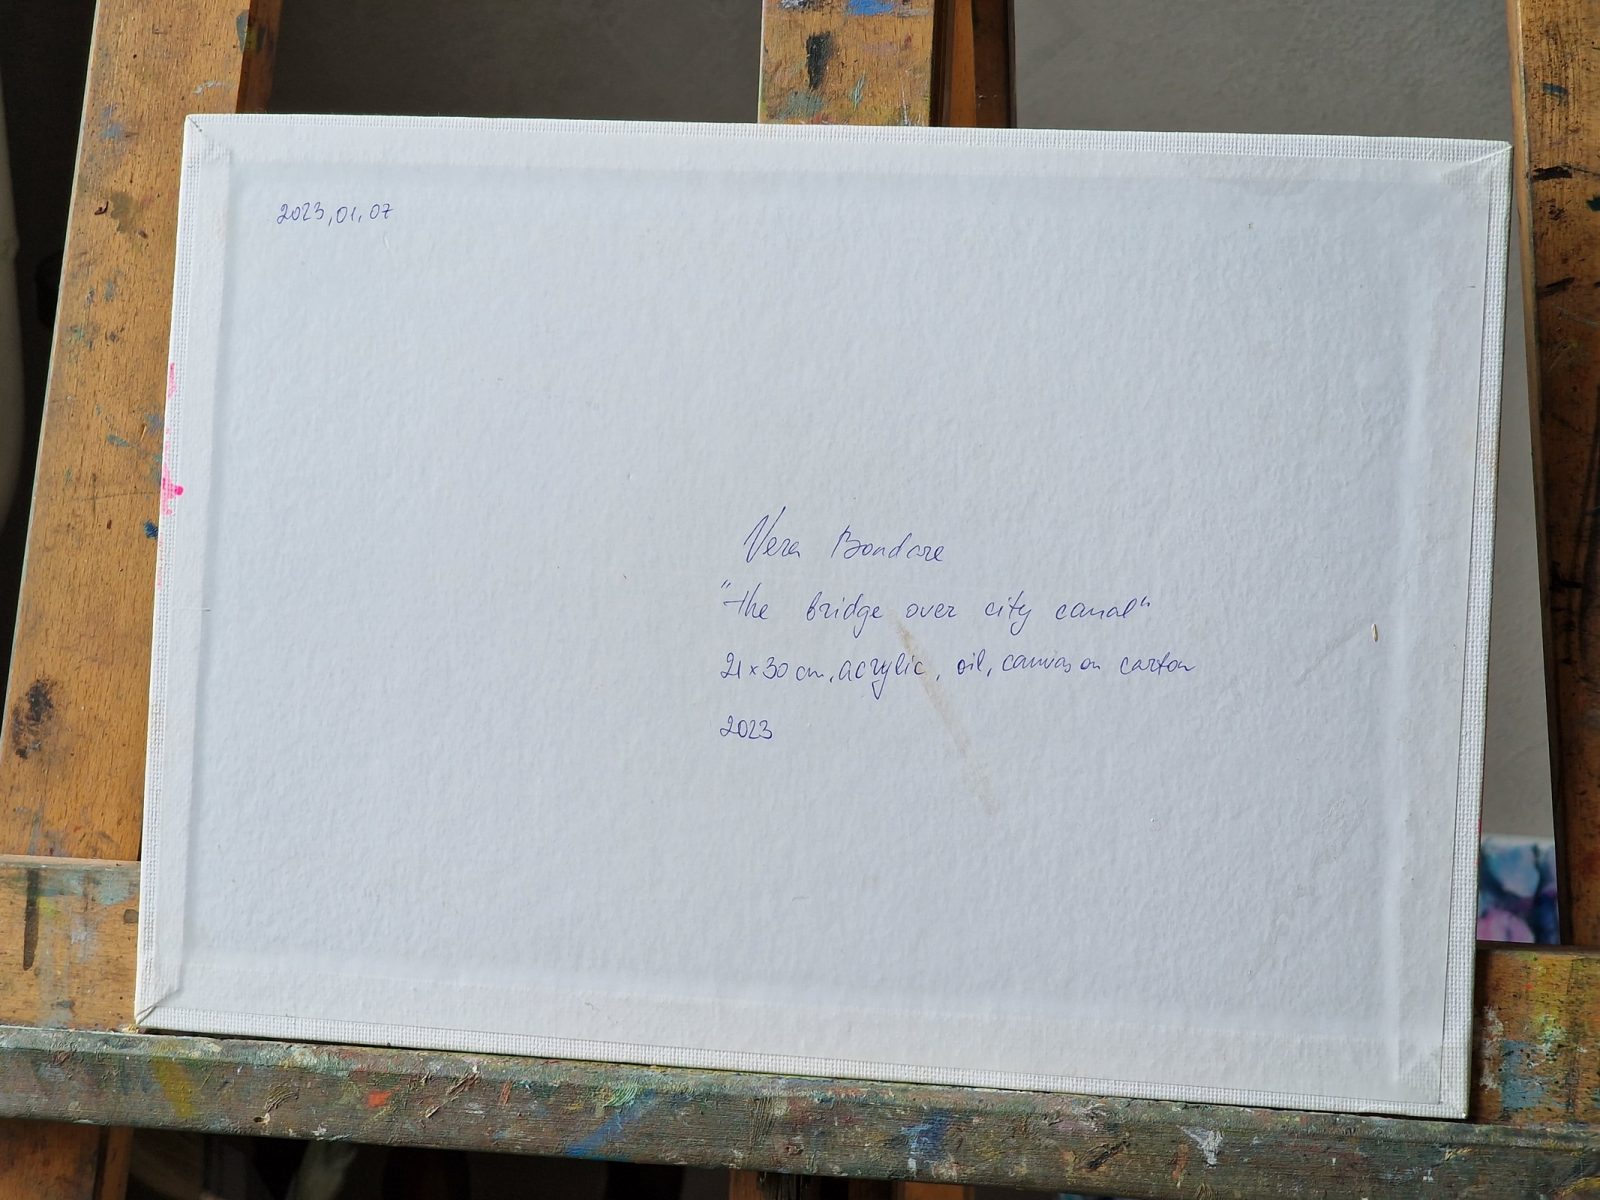 2023,01,07
Vera Bondare
"The bridge over city canal"
21×30 cm, acrylic, oil, canvas on carton
2023